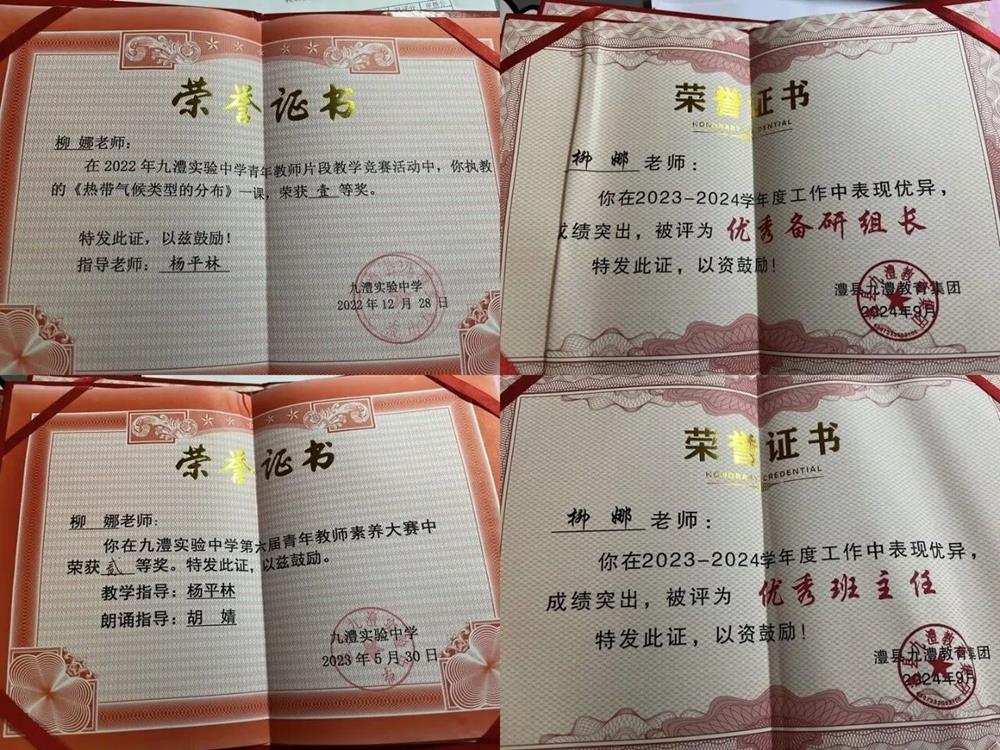 荣誉证书
柳 娜老师：
在2022年九澧实验中学青年教师片段教学竞赛活动中，你执教
的《热带气候类型的分布》一课，荣获 壹 等奖。
特发此证，以兹鼓励！
指导老师： 杨平林
九澧实验中学
2022年12月28日
荣誉证书
HONORARY CREDENTIAL
柳 娜 老师：
你在2023-2024学年度工作中表现优异，
成绩突出，被评为 优秀备研组长
特发此证，以资鼓励！
澧县九澧教育集团
2024年9月
荣誉证书
柳 娜老师：
你在九澧实验中学第六届青年教师素养大赛中
荣获 贰 等奖。特发此证，以兹鼓励。
教学指导：杨平林
朗诵指导：胡 婧
九澧实验中学
2023年5月30日
荣誉证书
HONORARY CREDENTIAL
柳 娜 老师：
你在2023-2024学年度工作中表现优异，
成绩突出，被评为 优秀班主任
特发此证，以资鼓励！
澧县九澧教育集团
2024年9月